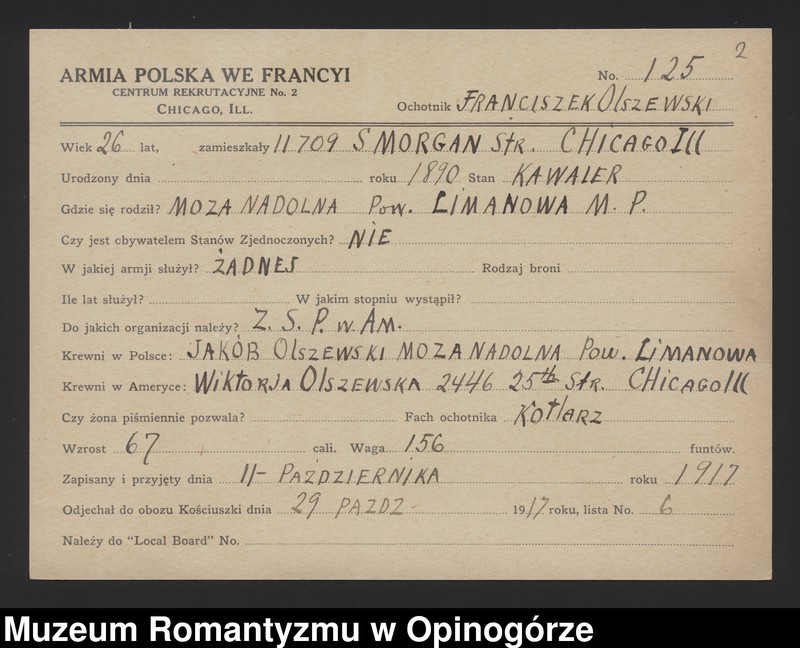 2
ARMIA POLSKA WE FRANCYI
CENTRUM REKRUTACYJNE No. 2
CHICAGO, ILL.
No. 125
Ochotnik FRANCISZEK OLSZEWSKI
Wiek 26 lat, zamieszkały 11709 S MORGAN Str. CHICAGO Ill
Urodzony dnia roku 1890 Stan KAWALER
Gdzie się rodził? MOZA NADOLNA Pow. LIMANOWA M. P.
Czy jest obywatelem Stanów Zjednoczonych? NIE
W jakiej armji służył? ŻADNEJ Rodzaj broni
Ile lat służył? W jakim stopniu wystąpił?
Do jakich organizacji należy? Z. S. P. w Am.
Krewni w Polsce: JAKÓB OlSZEWSKI MOZA NADOLNA Pow. LIMANOWA
Krewni w Ameryce: WIKTORJA OlSZEWSKA 2446 25th Str. CHICAGO Ill
Czy żona piśmiennie pozwala? Fach ochotnika KOTLARZ
Wzrost 67 cali. Waga 156 funtów.
Zapisany i przyjęty dnia 11- PAŹDZIERNIKA roku 1917
Odjechał do obozu Kościuszki dnia 29 PAZDZ- 1917 roku, lista No. 6
Należy do "Local Board" No.
Muzeum Romantyzmu w Opinogórze